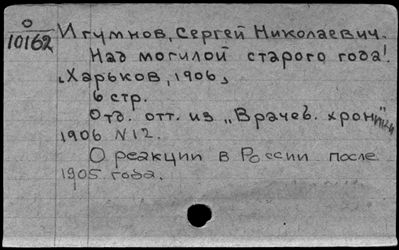 О
10162
Игумнов, Сергей Николаевич.
Над могилой старого года!
„Харьков, 1906„
6 стр.
Отд. отт. из „Врачев. хроники"
1906 N12.
О реакции в России после
1905 года.